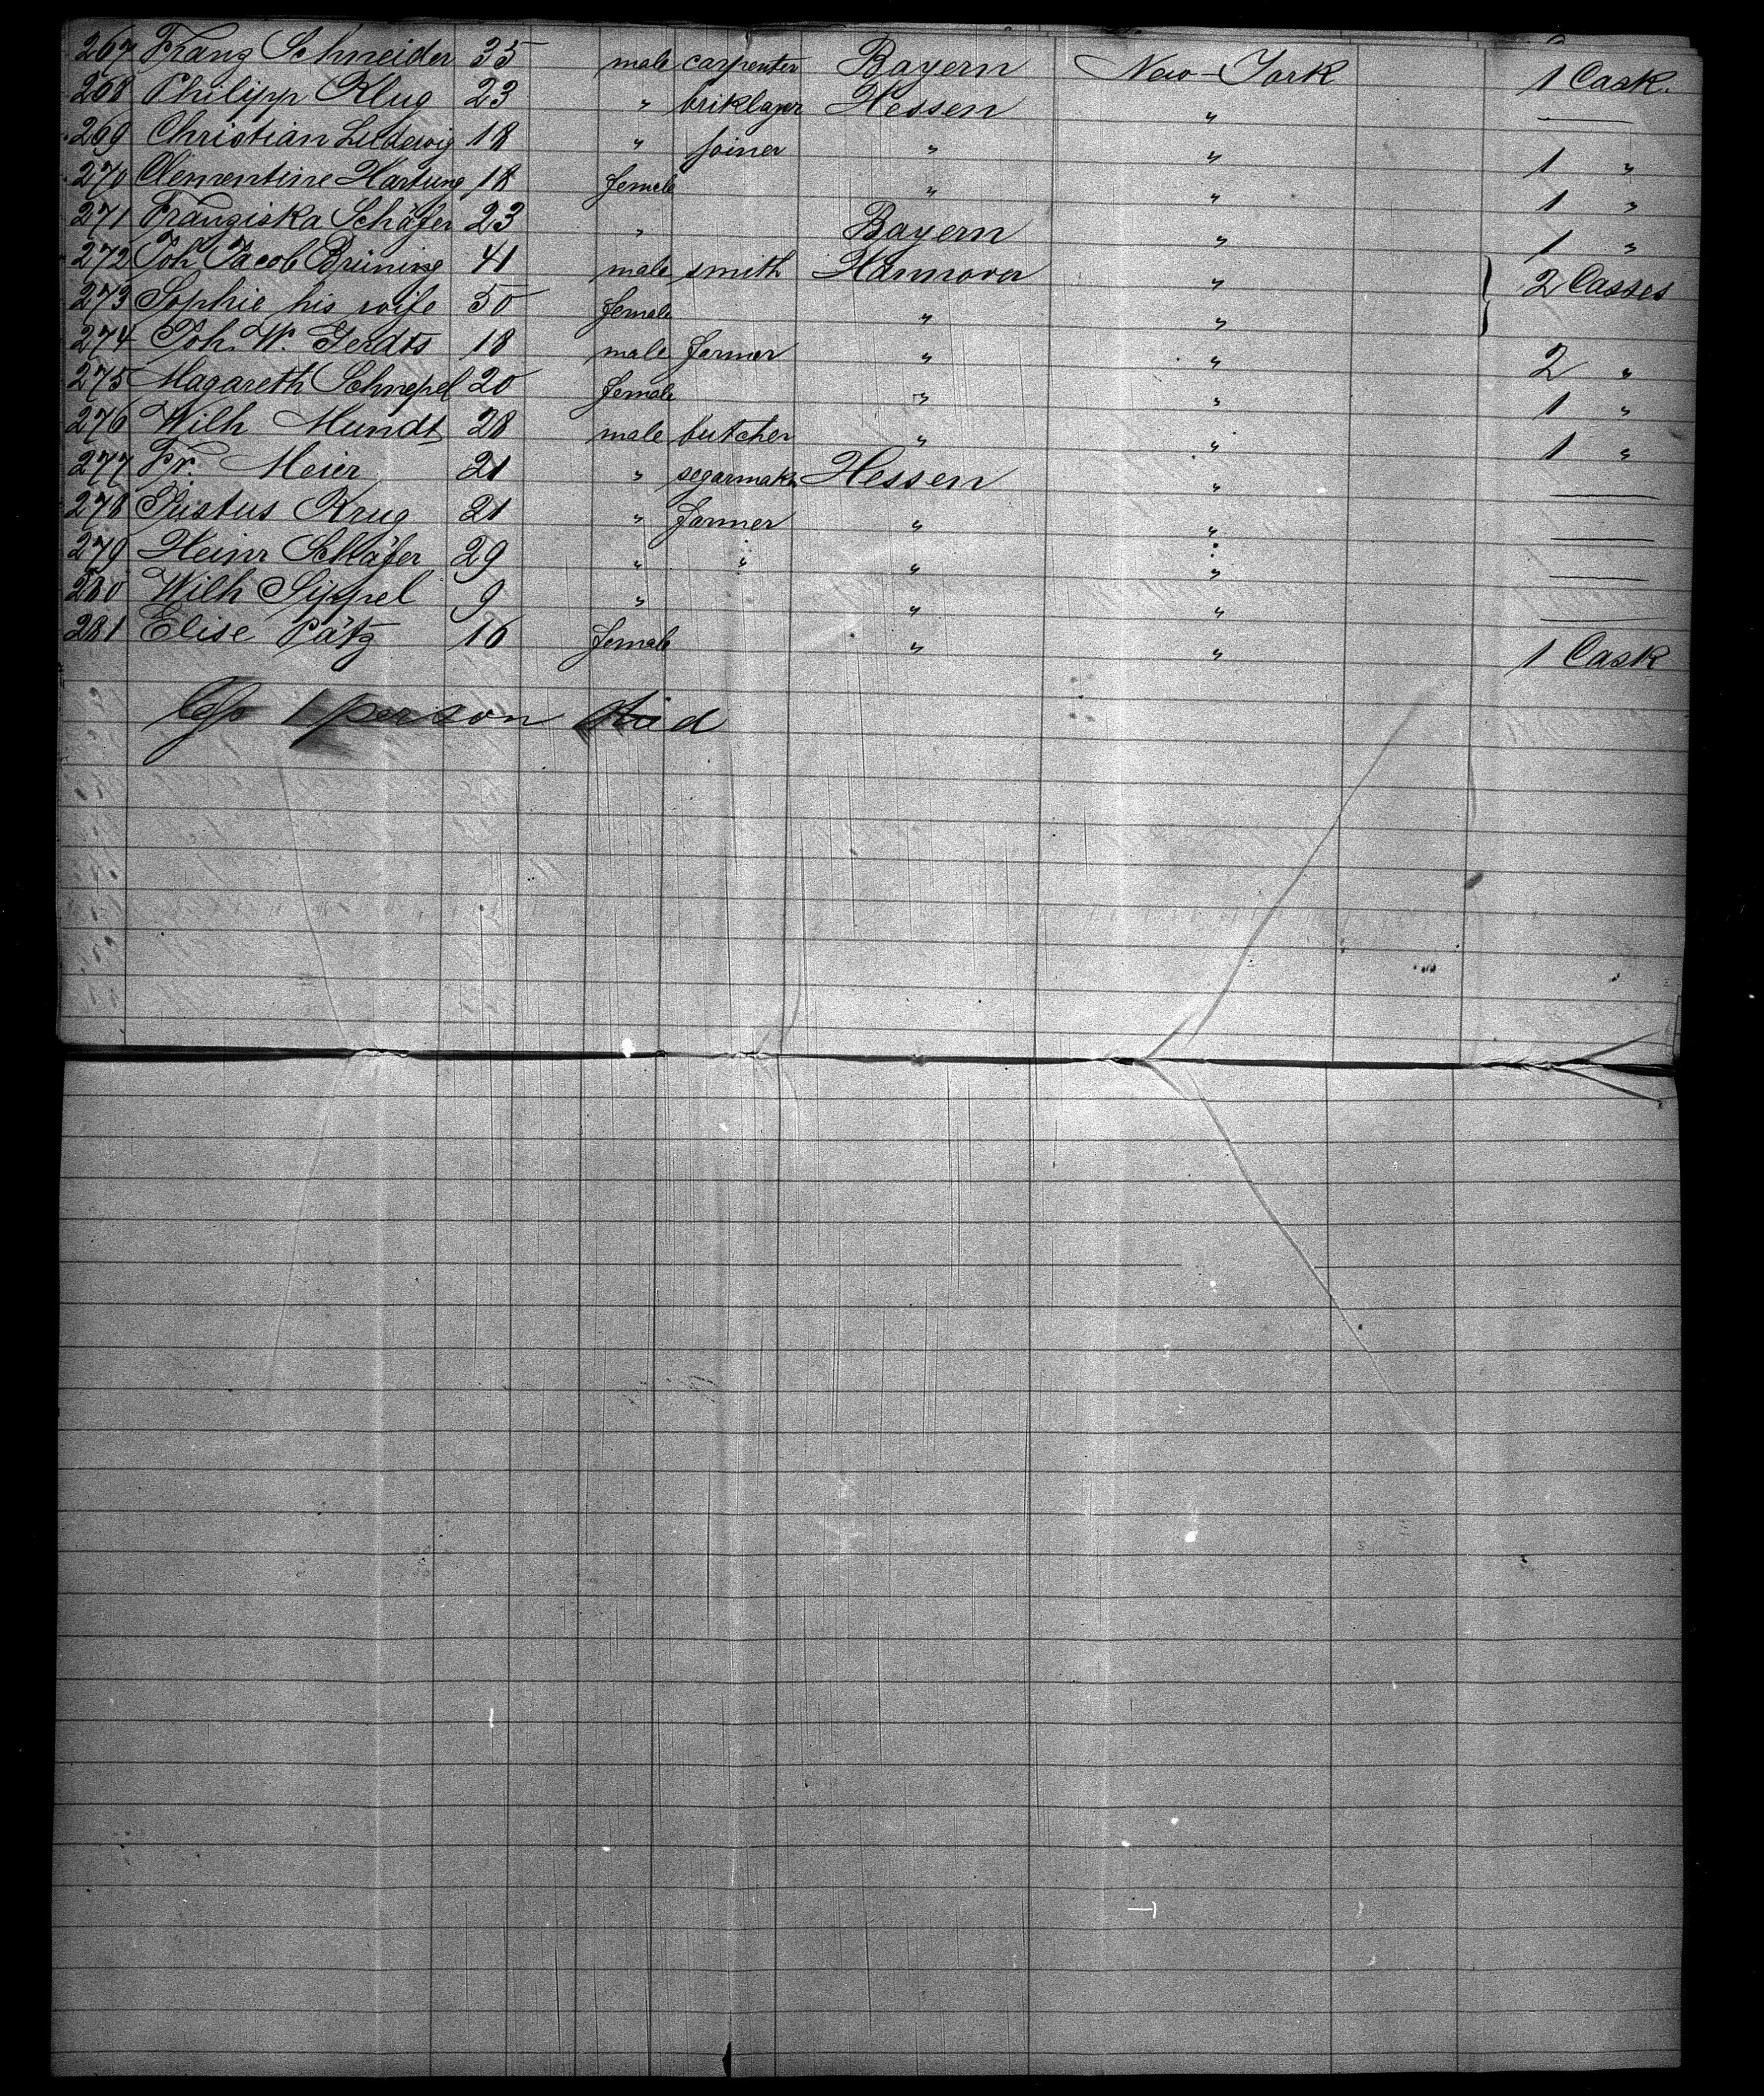 267 Franz Schneider 35 male carpenter Bayern New-York 1 Cask.
268 Philipp Klug 23 " briklayer Hessen " —
269 Christian Ludewig 18 " joiner " " 1 "
270 Clementine Hartung 18 female " " 1 "
271 Franziska Schäfer 23 " Bayern " 1 "
272 Joh Jacob Brüning 41 male smith Hannover " 2 Casses
273 Sophie his wife 50 female " "
274 Joh. W. Gerdts 18 male farmer " " 2 "
275 Magareth Schnepel 20 female " " 1 "
276 Wilh Mundt 28 male butcher " " 1 "
277 Fr. Meier 21 " segarmaker Hessen " —
278 Justus Krug 21 " farmer " " —
279 Heinr Schäfer 29 " " " " —
280 Wilh Sippel 9 " " " —
281 Elise Pätz 16 female " " 1 Cask
1 person